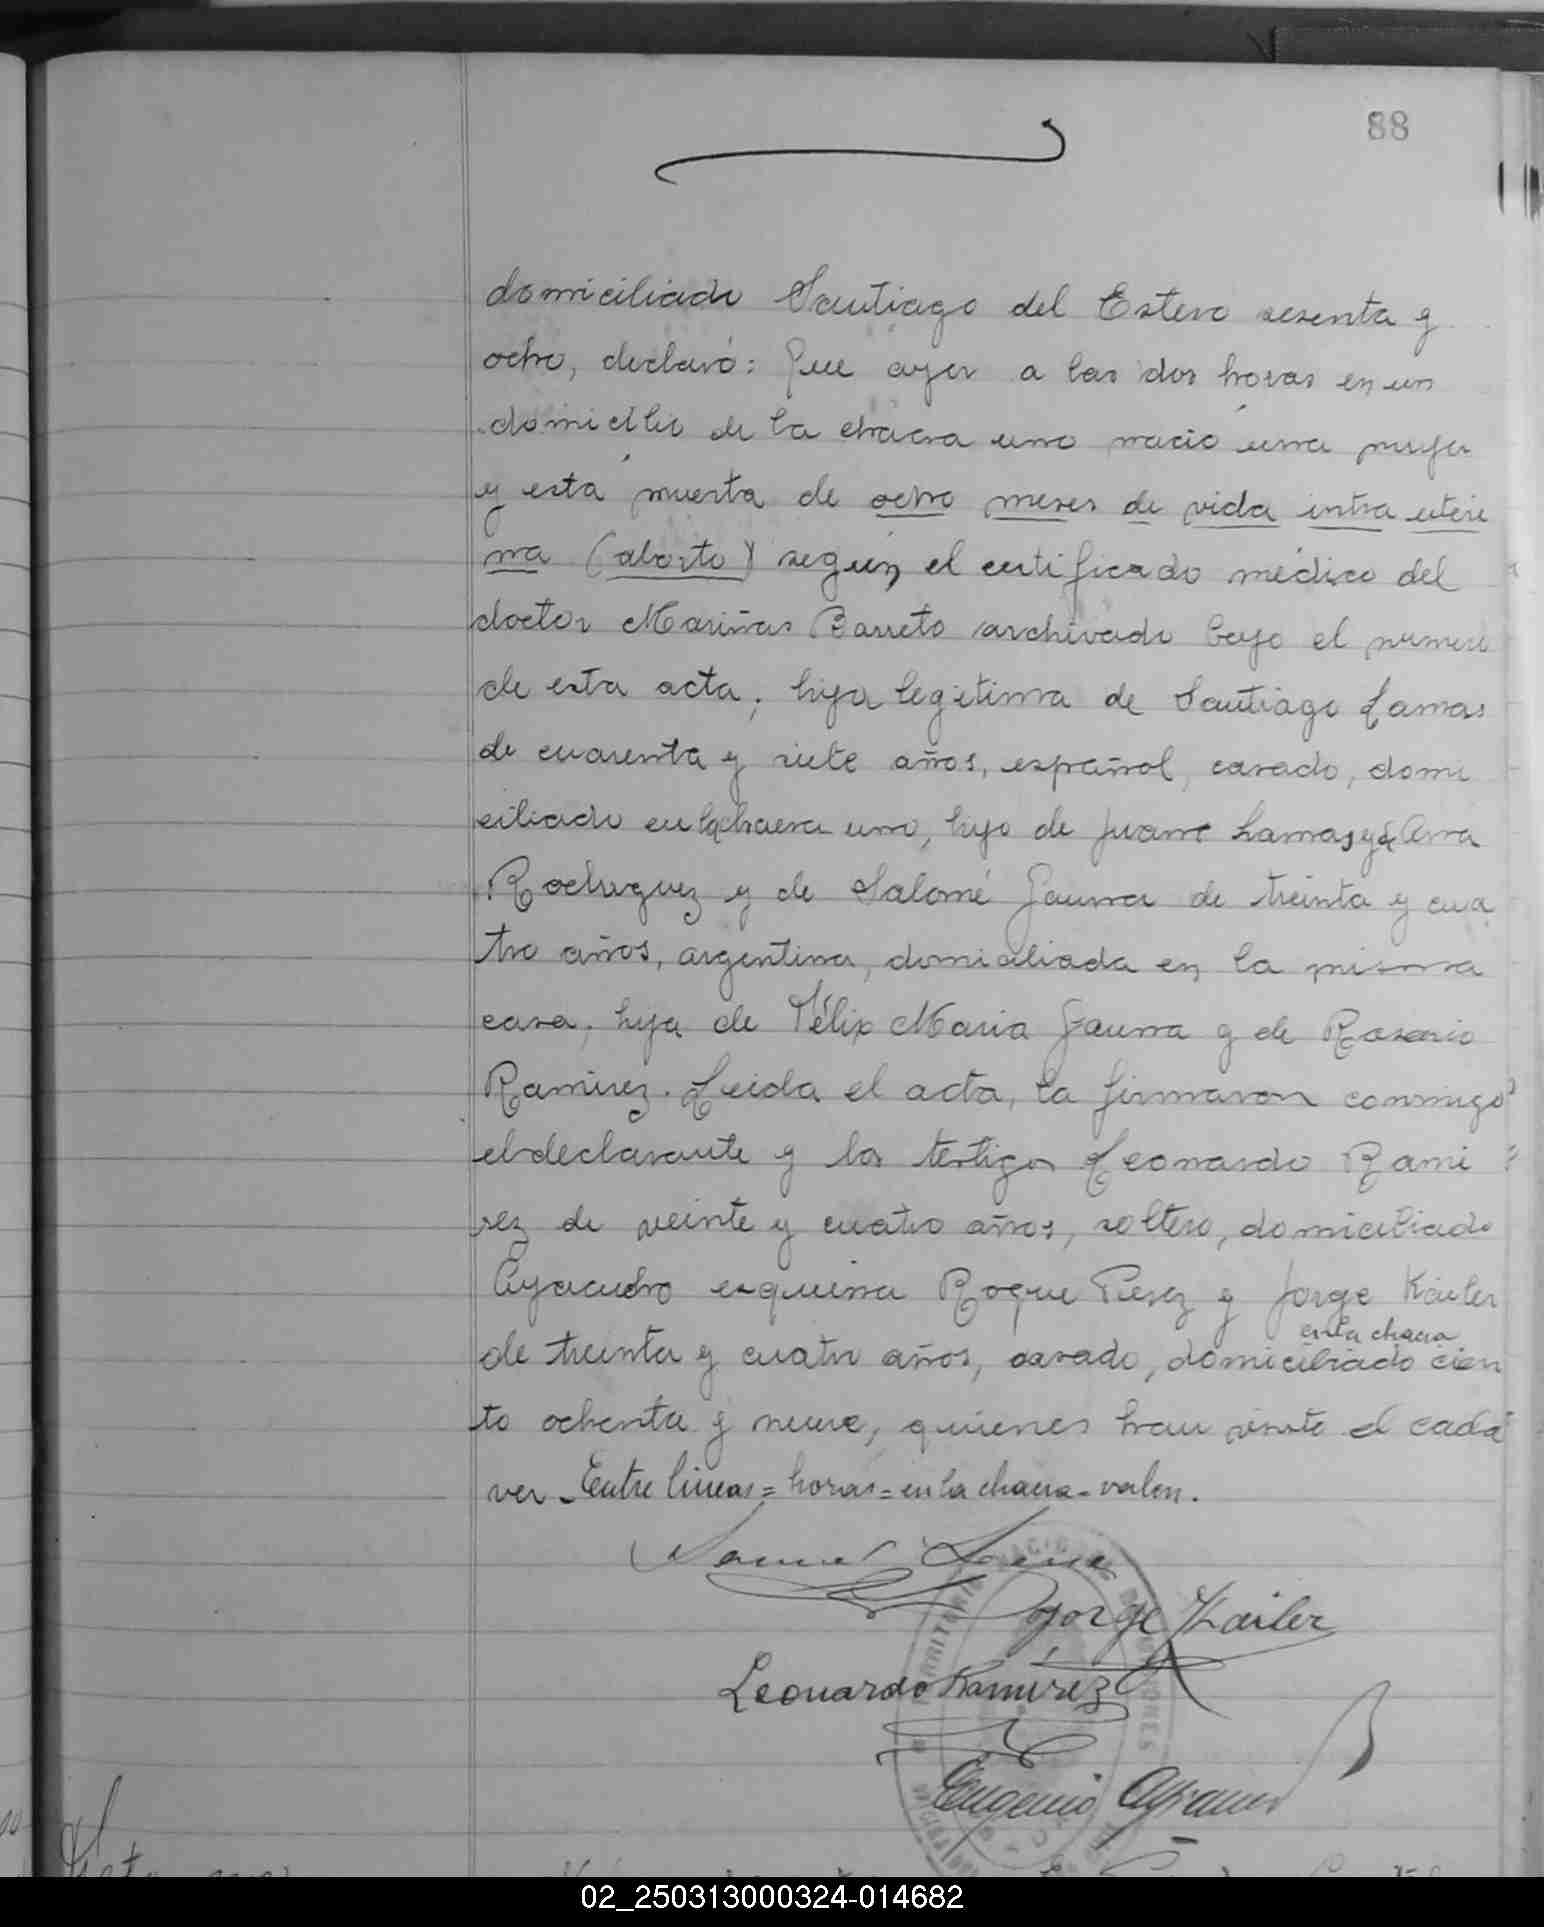 88
domiciliado Santiago del Estero sesenta y
ocho, declaró: Que ayer a las dos horas en un
domicilio de la chacra uno nació una mujer
y está muerta de ocho meses de vida intra uteri
na (aborto) según el certificado médico del
doctor Mariñas Barreto archivado bajo el numero
de esta acta, hija legitima de Santiago Lamas
de cuarenta y siete años, español, casado, domi
ciliado en la chacra uno, hijo de Juan Lamas y de Ana
Rodriguez y de Salomé Gauna de treinta y cua
tro años, argentina, domiciliada en la misma
casa, hija de Félix Maria Gauna y de Rosario
Ramirez. Leida el acta, la firmaron conmigo
el declarante y los testigos Leonardo Rami
rez de veinte y cuatro años, soltero, domiciliado
Ayacucho esquina Roque Perez y Jorge Kailer
en la chacra
de treinta y cuatro años, casado, domiciliado cien
to ochenta y nueve, quienes han visto el cadá
ver - Entre lineas = horas = en la chacra - valen.
Jorge Kailer
Leonardo Ramírez
Eugenio
02_250313000324-014682